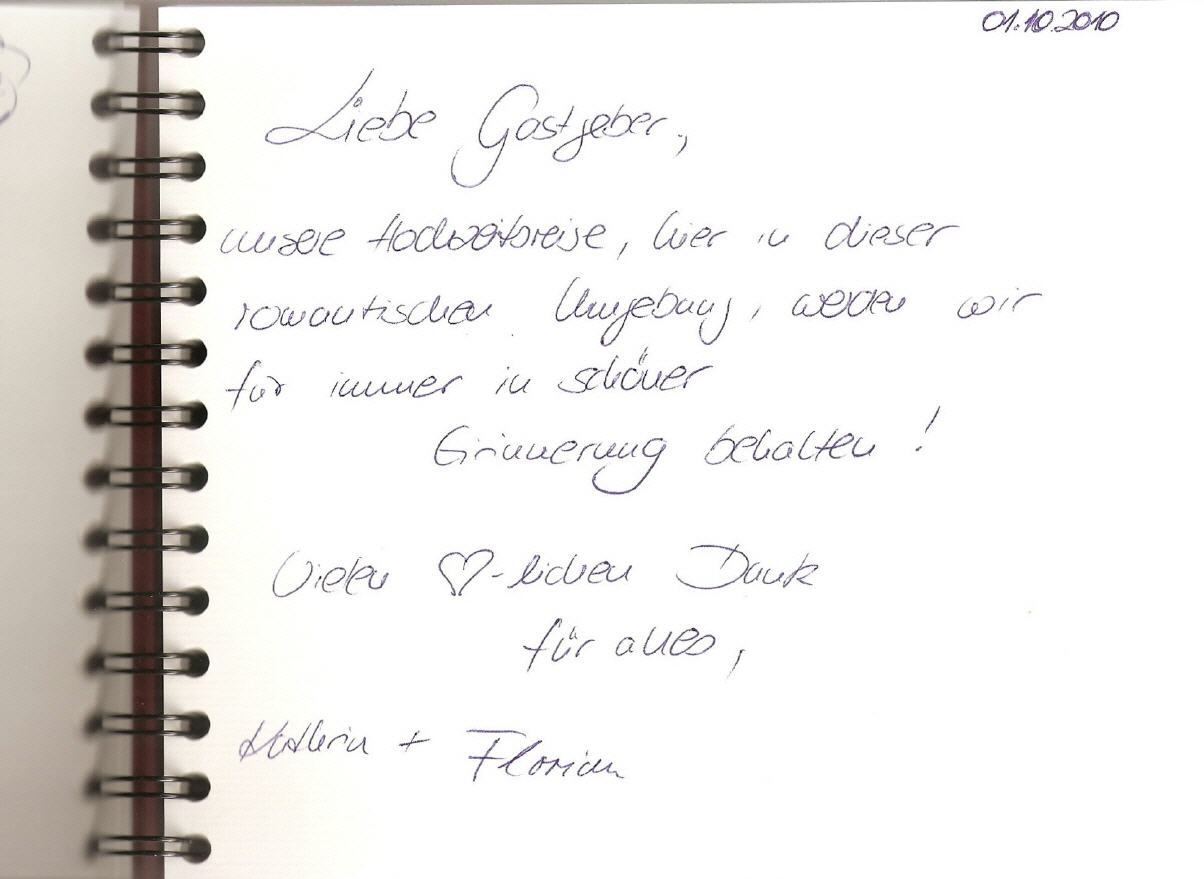 01.10.2010
Liebe Gastgeber,
unsere Hochzeitsreise, hier in dieser
romantischen Umgebung, werden wir
für immer in schöner
Erinnerung behalten!
Vielen ♡-lichen Dank
für alles,
Kathrin + Florian